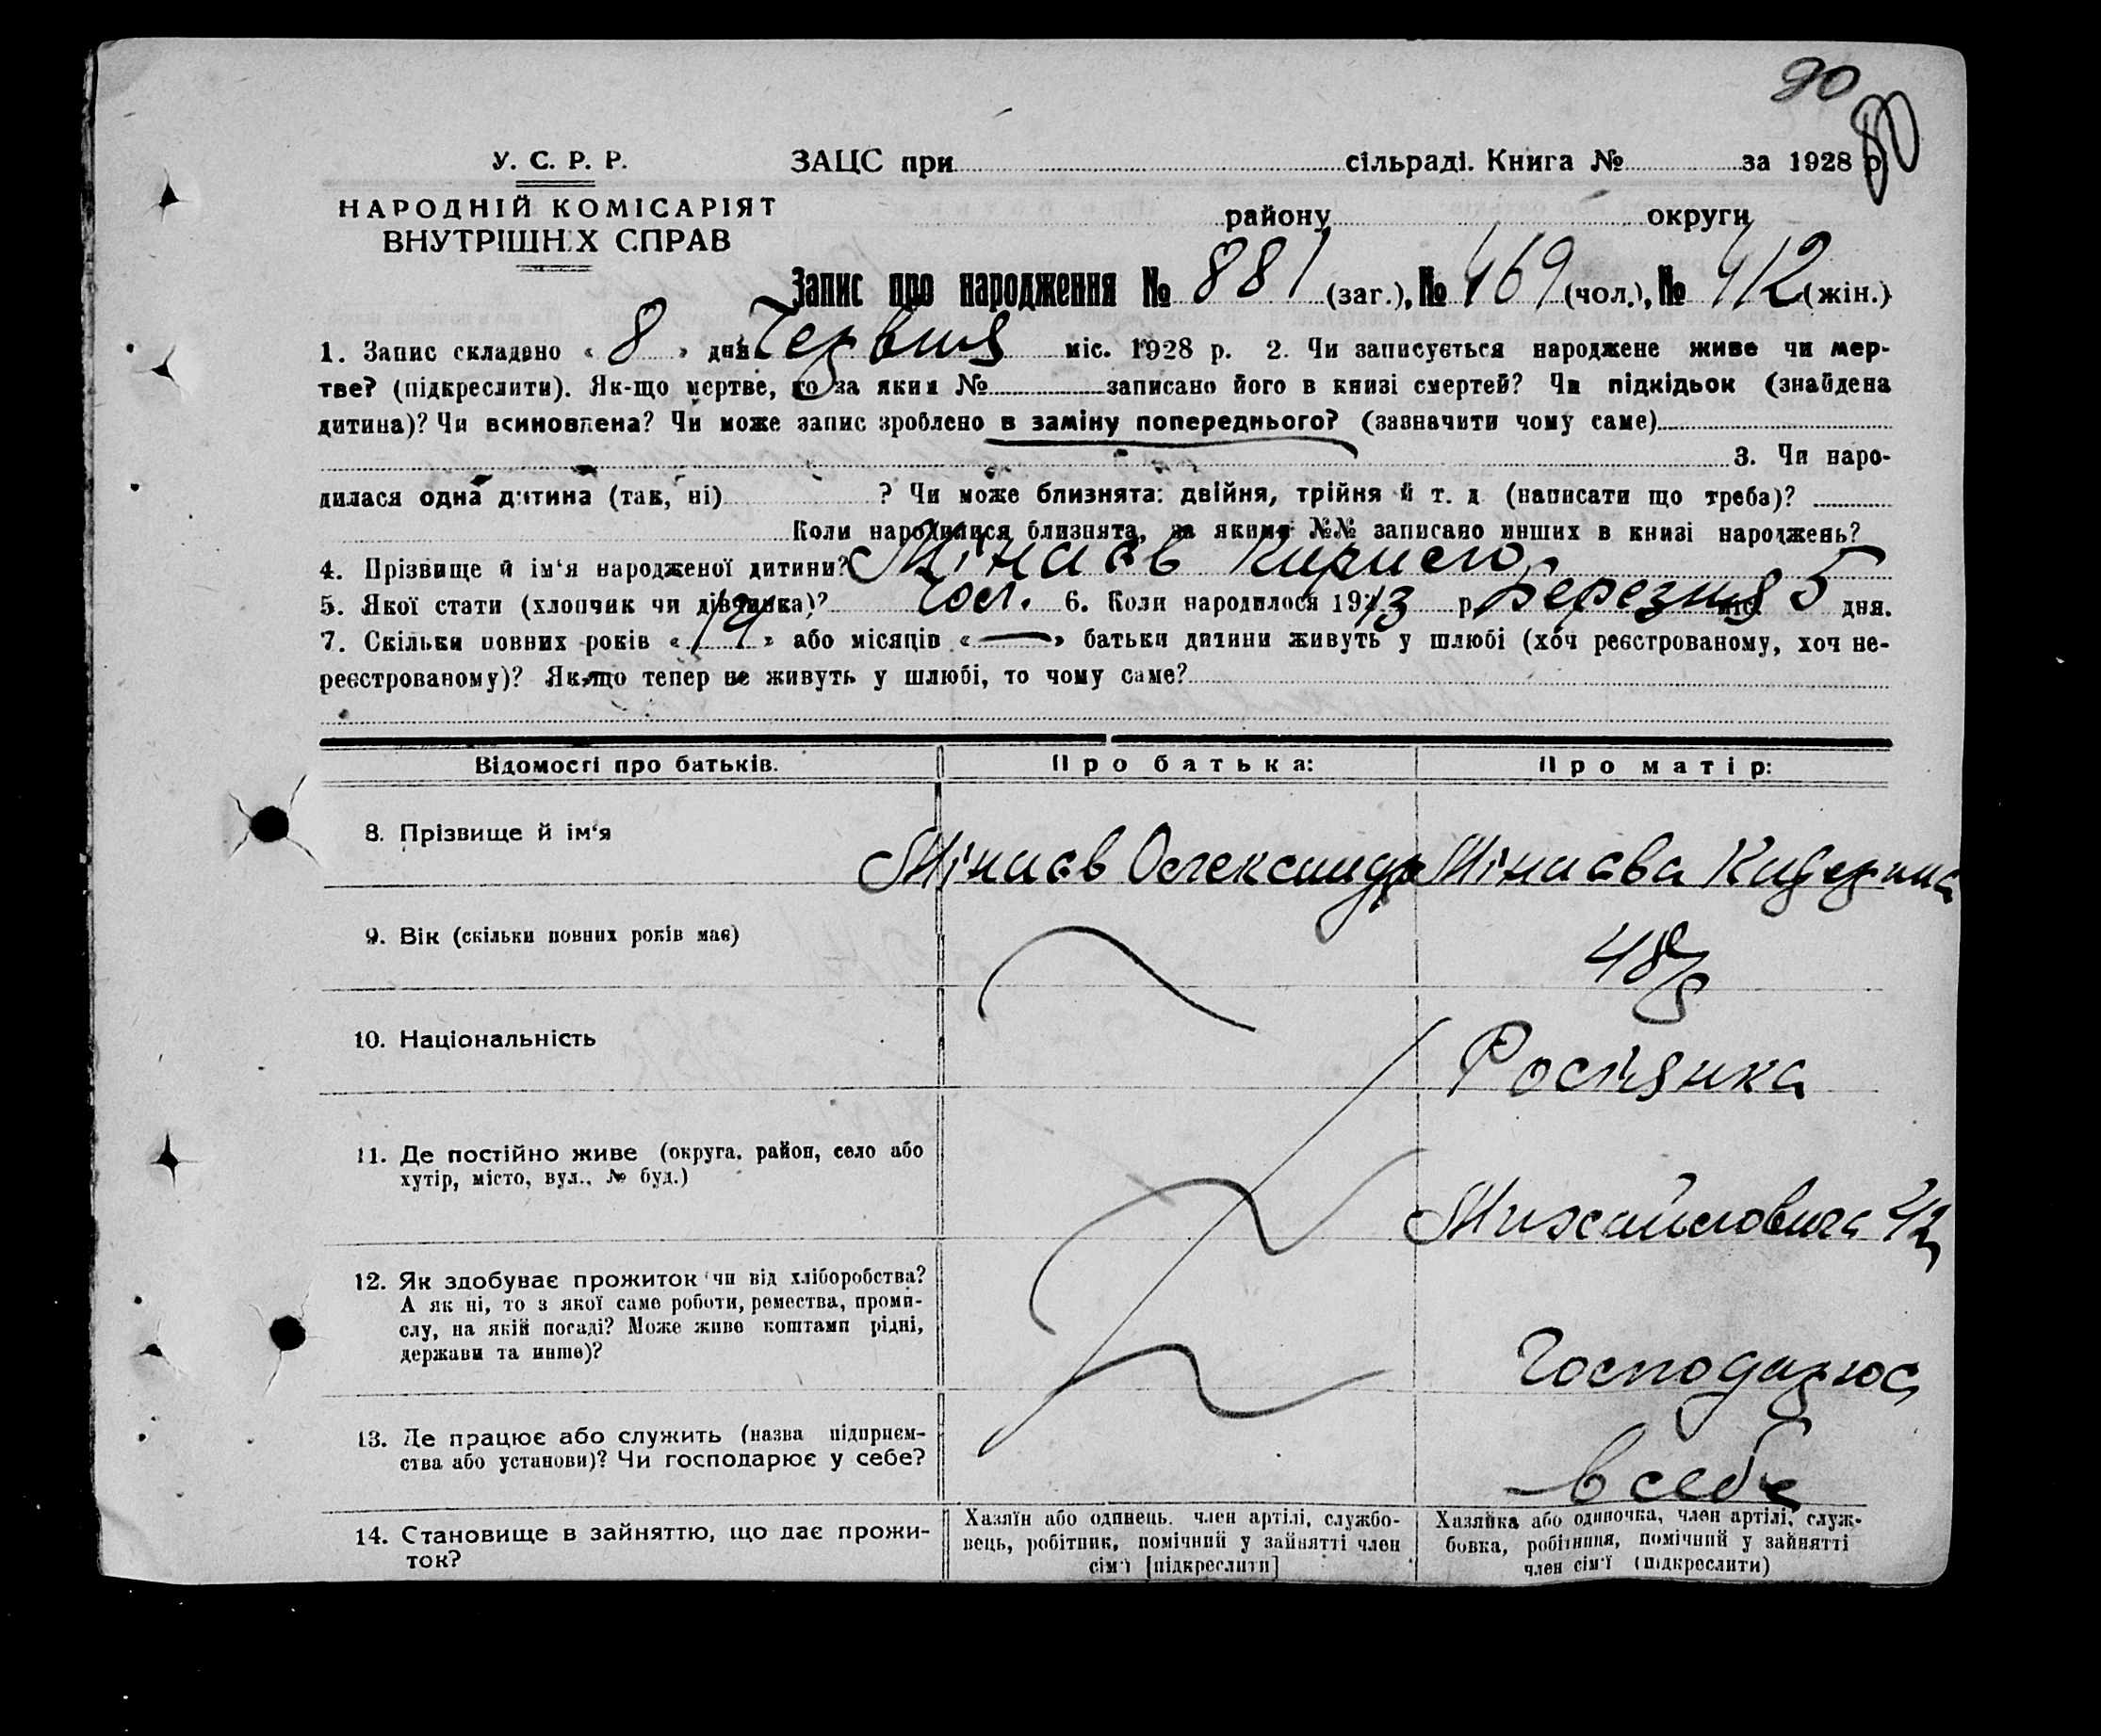 90
80
У. С. Р. Р.
ЗАЦС при сільраді. Книга № за 1928 р.
НАРОДНІЙ КОМІСАРІЯТ
ВНУТРІШНІХ СПРАВ
району округи
Запис про народження № 881 (заг.), № 469 (чол.), № 412 (жін.)
1. Запис складено « 8 » дня Червня міс. 1928 р. 2. Чи записується народжене живе чи мер-
тве? (підкреслити). Як-що мертве, то за яким № записано його в книзі смертей? Чи підкідьок (знайдена
дитина)? Чи всиновлена? Чи може запис зроблено в заміну попереднього? (зазначити чому саме)
3. Чи наро-
дилася одна дитина (так, ні) ? Чи може близнята: двійня, трійня й т. д (написати що треба)?
Коли народилися близнята, за якими №№ записано инших в книзі народжень?
4. Прізвище й ім‘я народженої дитини? Мінаєв Кирило
5. Якої стати (хлопчик чи дівчинка)? Чол. 6. Коли народилося 1913 р. Березня міс. 5 дня.
7. Скільки повних років « 19 » або місяців « — » батьки дитини живуть у шлюбі (хоч реєстрованому, хоч не-
реєстрованому)? Як-що тепер не живуть у шлюбі, то чому саме?
Відомості про батьків. Про батька: Про матір:
8. Прізвище й ім‘я Мінаєв Олександр Мінаєва Катерина
9. Вік (скільки повних років має) 48 р
10. Національність Росіянка
11. Де постійно живе (округа, район, село або
хутір, місто, вул., № буд.)
Михайловича 42
12. Як здобуває прожиток чи від хліборобства?
А як ні, то з якої саме роботи, ремества, проми-
слу, на якій посаді? Може живе коштами рідні,
держави та инше)?
Господарює
13. Де працює або служить (назва підприєм-
ства або установи)? Чи господарює у себе?
в себе
14. Становище в зайняттю, що дає прожи-
ток?
Хазяїн або одинець, член артілі, службо-
вець, робітник, помічний у зайнятті член
сім‘ї [підкреслити]
Хазяйка або одиночка, член артілі, служ-
бовка, робітниця, помічний у зайнятті
член сім‘ї (підкреслити)